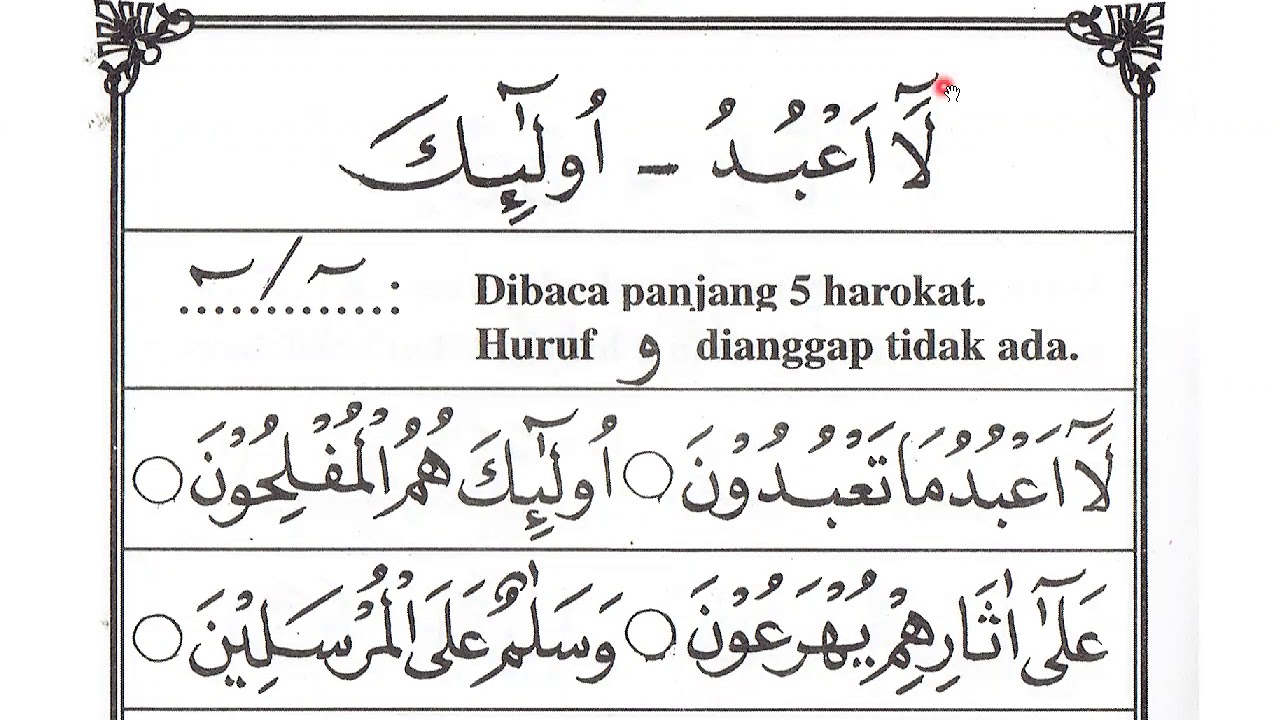 لَآ اَعْبُدُ - اُولٰٓئِكَ
ـٓ / ـٓ : Dibaca panjang 5 harokat.
Huruf و dianggap tidak ada.
لَآ اَعْبُدُ مَا تَعْبُدُوْنَ ○ اُولٰٓئِكَ هُمُ الْمُفْلِحُوْنَ ○
عَلٰٓى اٰثَارِهِمْ يُهْرَعُوْنَ ○ وَسَلٰمٌ عَلَى الْمُرْسَلِيْنَ ○